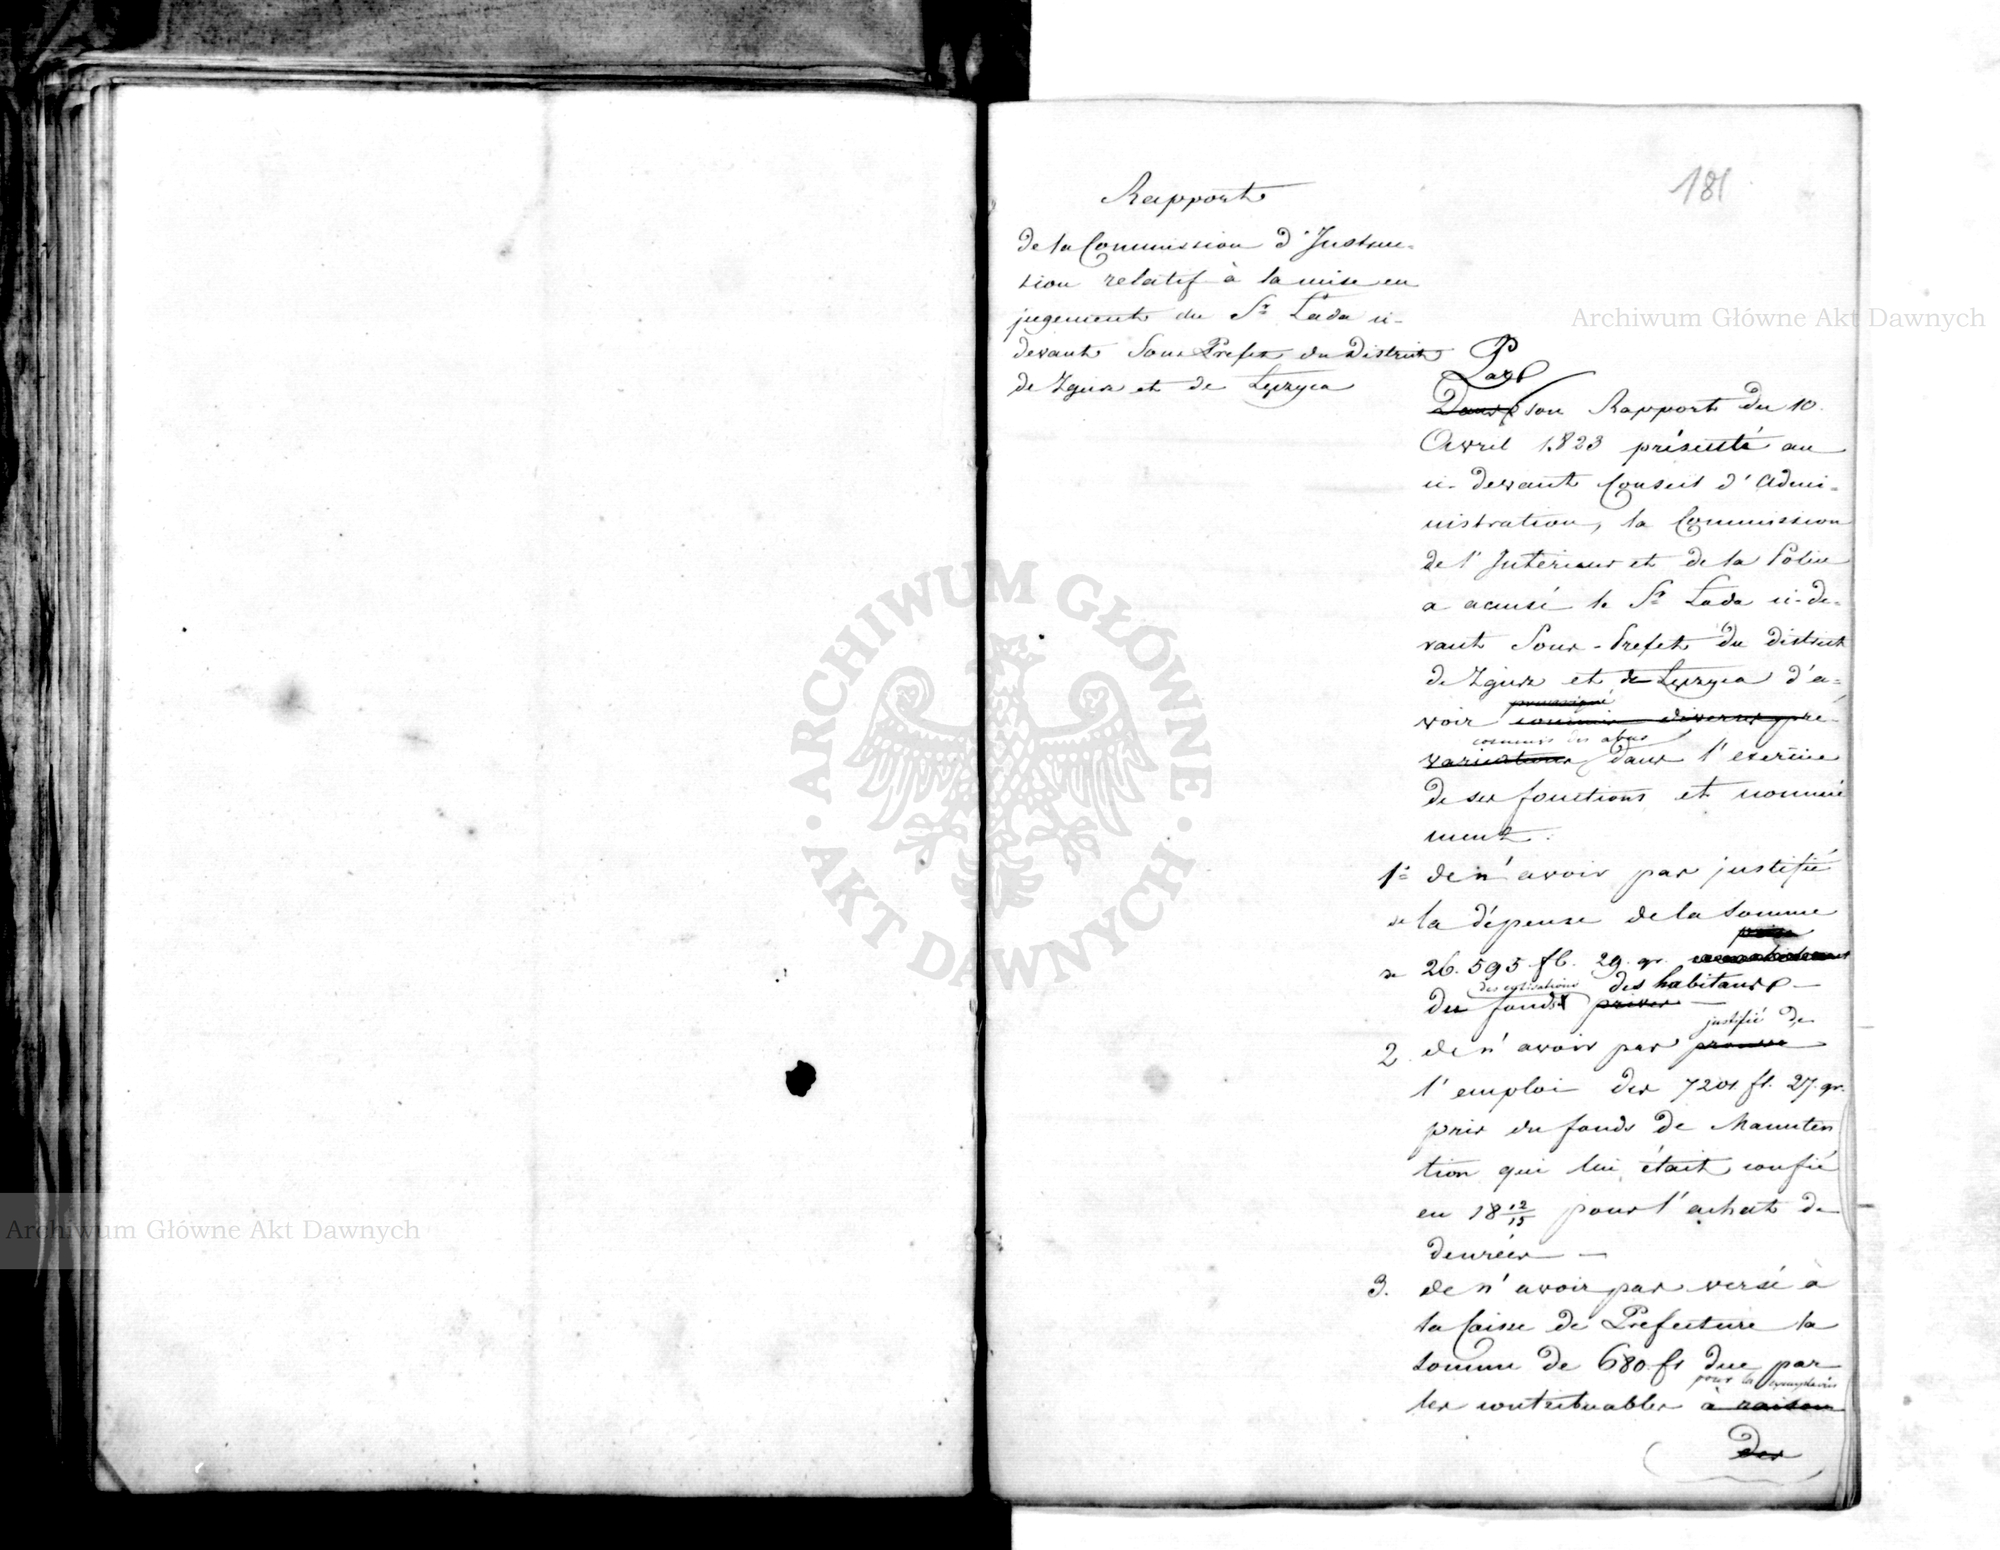 181
Rapport
de la Commission d'Instru-
tion relatif à la mise en
jugement du Sr. Lada ci-
devant Sous Prefet du District
de Zgierz et de Łęczyca
Par
Dans son Rapport du 10.
Avril 1823 présenté au
ci-devant Conseil d'Admi-
nistration, la Commission
de l'Intérieur et de la Police
a accusé le Sr. Lada ci-de-
vant Sous-Prefet du district
de Zgierz et de Łęczyca d'a-
voir commis diverses pré-
commis des abus
varications dans l'exercice
de ses fonctions et nommé
ment:
1o de n'avoir pas justifié
de la dépense de la somme
prise
de 26.595 fl. 29. gr.
des cotisations des habitans
du fonds privés
justifié de
2. de n'avoir pas prouvé
l'emploi des 7201 fl. 27. gr.
pris du fonds de Manuten
tion qui lui était confié
en 18 12/13 pour l'achat de
denrées
3. de n'avoir pas versé à
la Caisse de Prefecture la
somme de 680 fl due par
pour les exemplaires
les contribuables à raison
des
Archiwum Główne Akt Dawnych
Archiwum Główne Akt Dawnych
ARCHIWUM GŁÓWNE AKT DAWNYCH